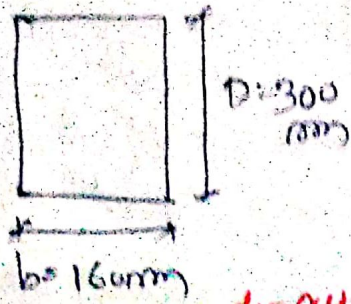 D=300
mm
b=160mm